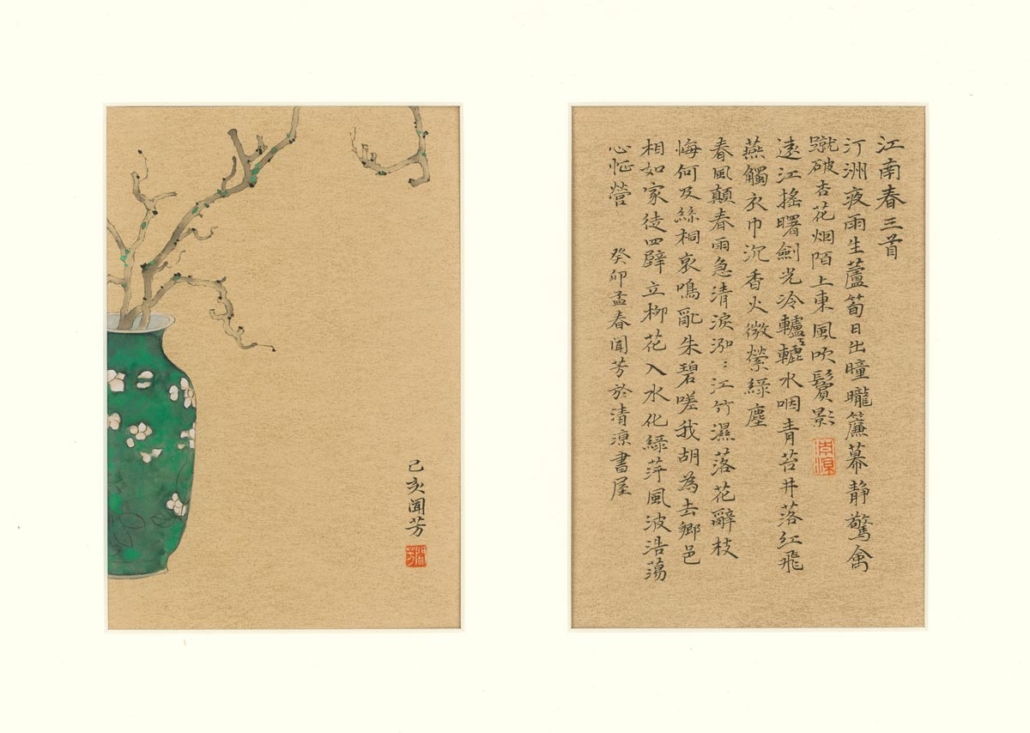 江南春三首
汀洲夜雨生蘆筍日出曈曨簾幕静驚禽
蹴破杏花烟陌上東風吹鬢影
遠江摇曙劍光冷轤轆水咽青苔井落红飛
燕觸衣巾沉香火微縈緑塵
春風顛春雨急清淚泓〻江竹濕落花辭枝
悔何及絲桐哀鳴亂朱碧嗟我胡為去鄉邑
相如家徒四壁立柳花入水化緑萍風波浩蕩
心怔營 癸卯孟春聞芳於清書屋
己亥聞芳